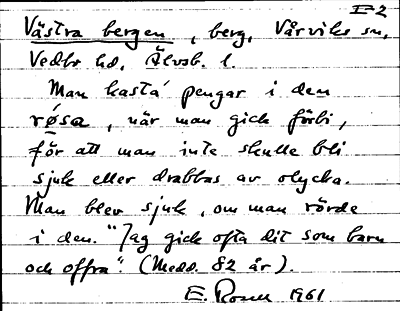 II 2
Västra bergen, berg, Vårviks sn,
Vedbo hd, Älvsb. l.
Man kasta' pengar i den
røsa, när man gick förbi,
för att man inte skulle bli
sjuk eller drabbas av olycka.
Man blev sjuk, om man rörde
i den. "Jag gick ofta dit som barn
och offra". (Medd. 82 år).
E. Rosell 1961